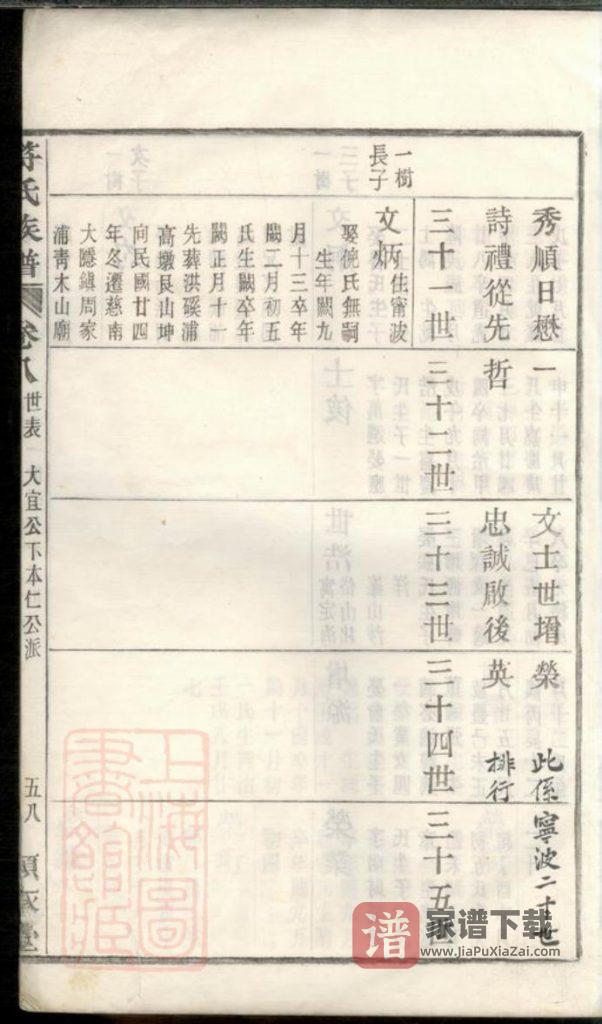 秀順日懋一　文士世增榮　此係寧波二十世
詩禮從先哲　忠誠啟後英　排行
三十一世
三十二世
三十三世
三十四世
三十五世
一樹
長子
文炳
住甯波
娶倪氏無嗣
生年闕九
月十三卒年
闕二月初五
氏生闕卒年
闕正月十一
先葬洪磎浦
高墩艮山坤
向民國廿四
年冬遷慈南
大隱鎮周家
浦青木山廟
氏族譜
卷八
世表
大宜公下本仁公派
五八
上海圖書館藏
谱
家谱下载
www.JiaPuXiaZai.com